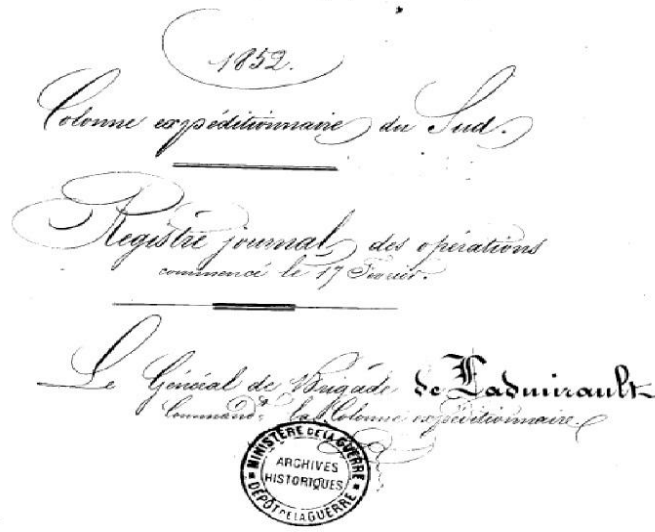 1852.
Colonne expéditionnaire du Sud.
Registre journal des opérations
commencé le 17 Fevrier.
Le Général de Brigade de Ladmirault
Command.t la Colonne expéditionnaire
MINISTÈRE DE LA GUERRE
ARCHIVES
HISTORIQUES
DÉPÔT DE LA GUERRE